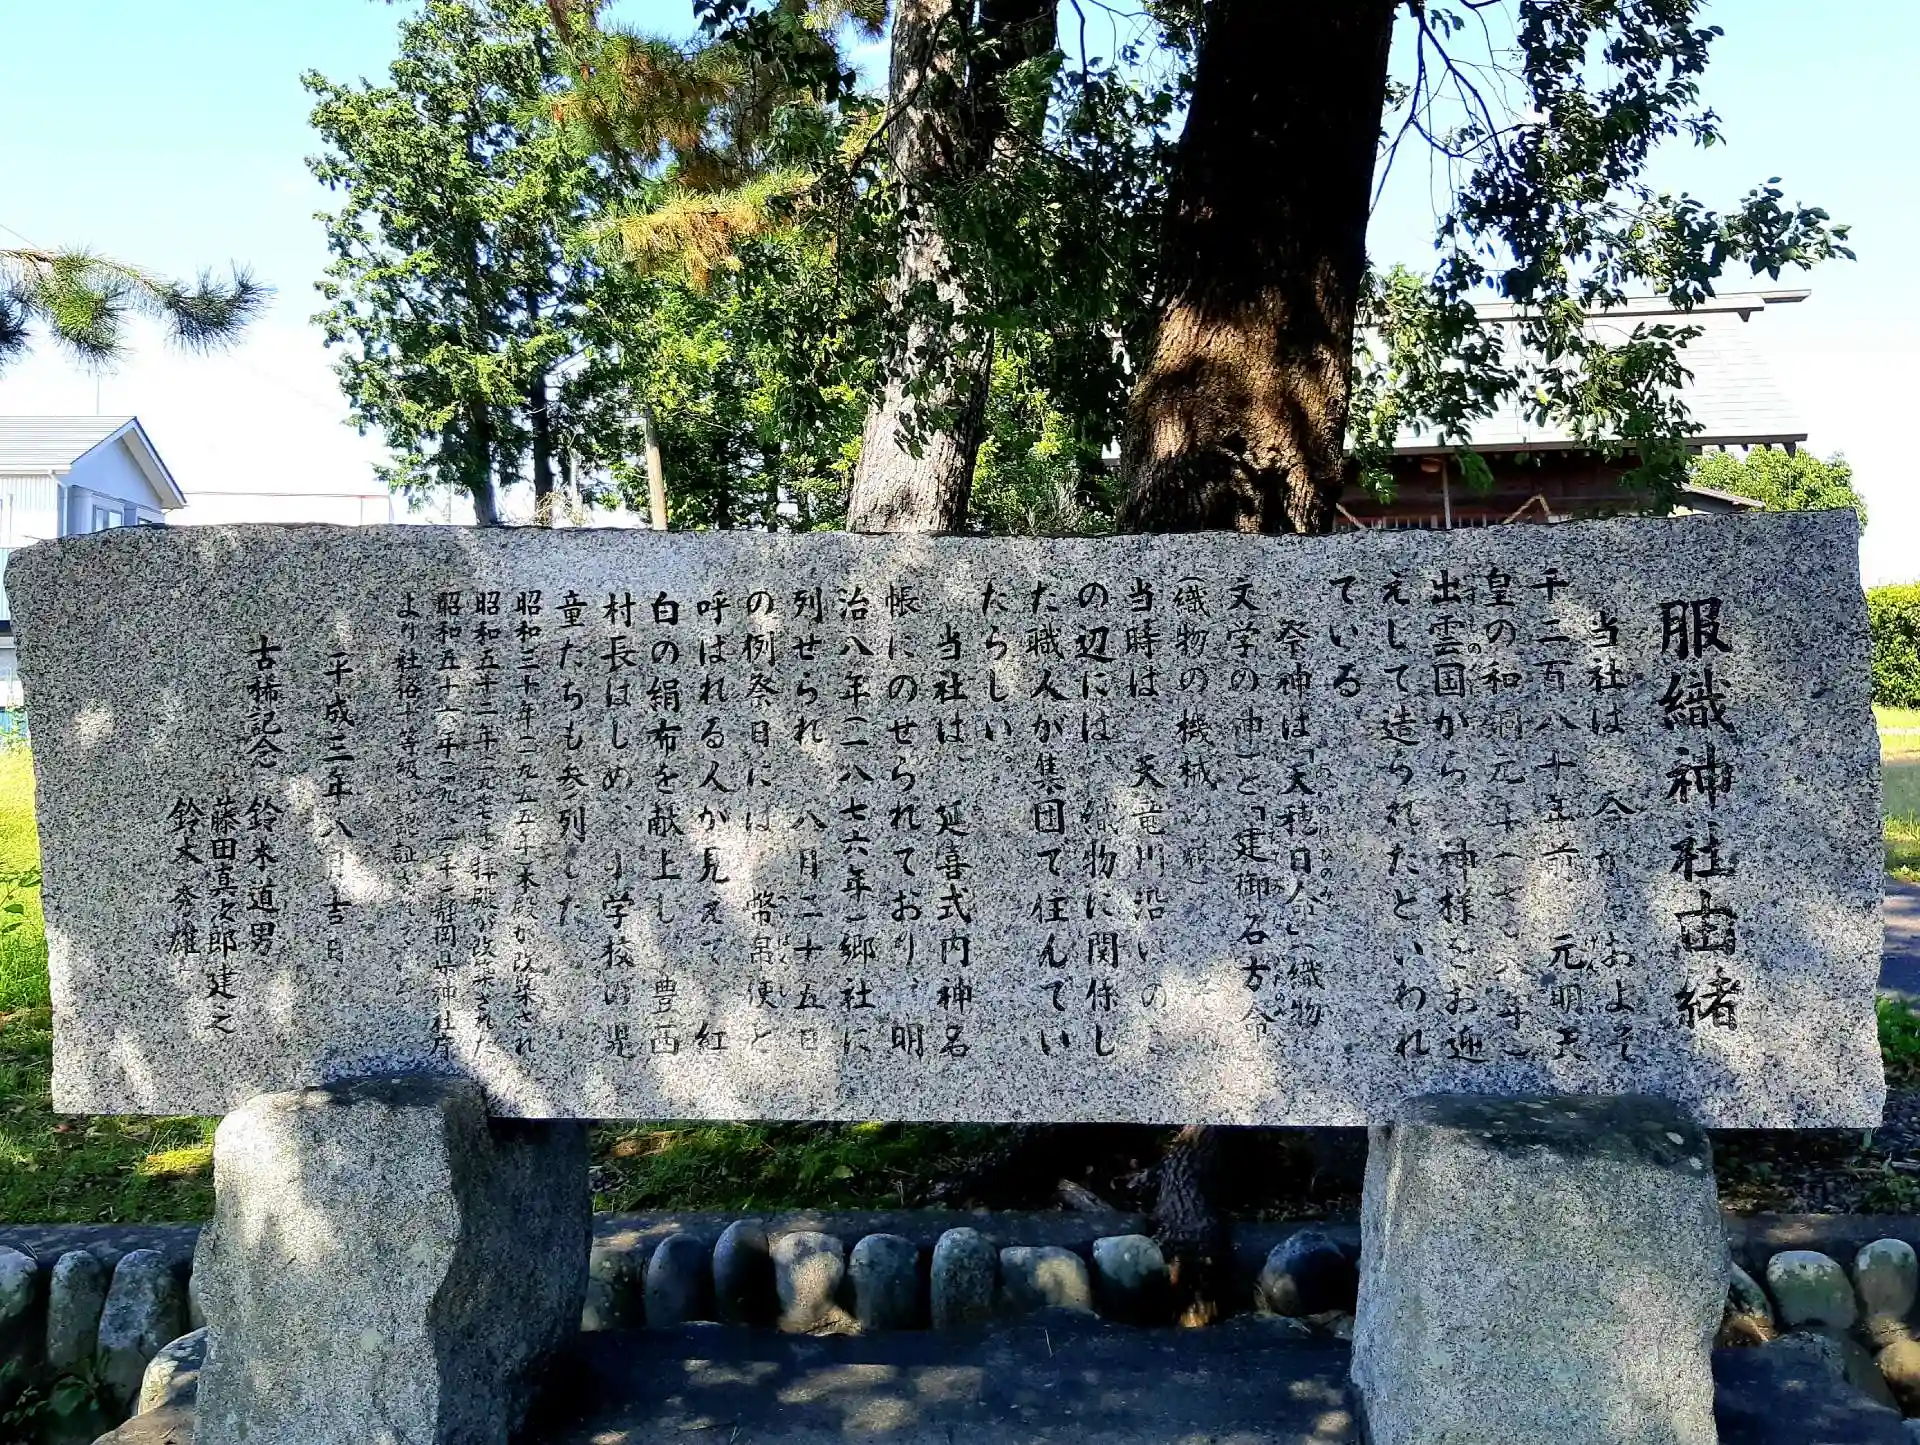 服織神社由緒
当社は 今からおよそ
千二百八十年前 元明天
皇の和銅元年(七〇八年)
出雲国から 神様をお迎
えして造られたといわれ
ている。
祭神は「天穂日命」(織物
文学の神)と「建御名方命」
(織物の機械の神)
当時は 天竜川沿いのこ
の辺には、織物に関係し
た職人が集団で住んでい
たらしい。
当社は、延喜式内神名
帳にのせられており、明
治八年(一八七六年)郷社に
列せられ 八月二十五日
の例祭日には 幣帛使と
呼ばれる人が見えて、紅
白の絹布を献上し 豊西
村長はじめ、小学校の児
童たちも参列した
昭和三十年(一九五五年)本殿が改築され
昭和五十二年(一九七七年)拝殿が改築された
昭和五十六年(一九八一年)静岡県神社庁
より社格十等級
平成三年八月吉日
古稀記念 鈴木道男
藤田真次郎 建之
鈴木 雄